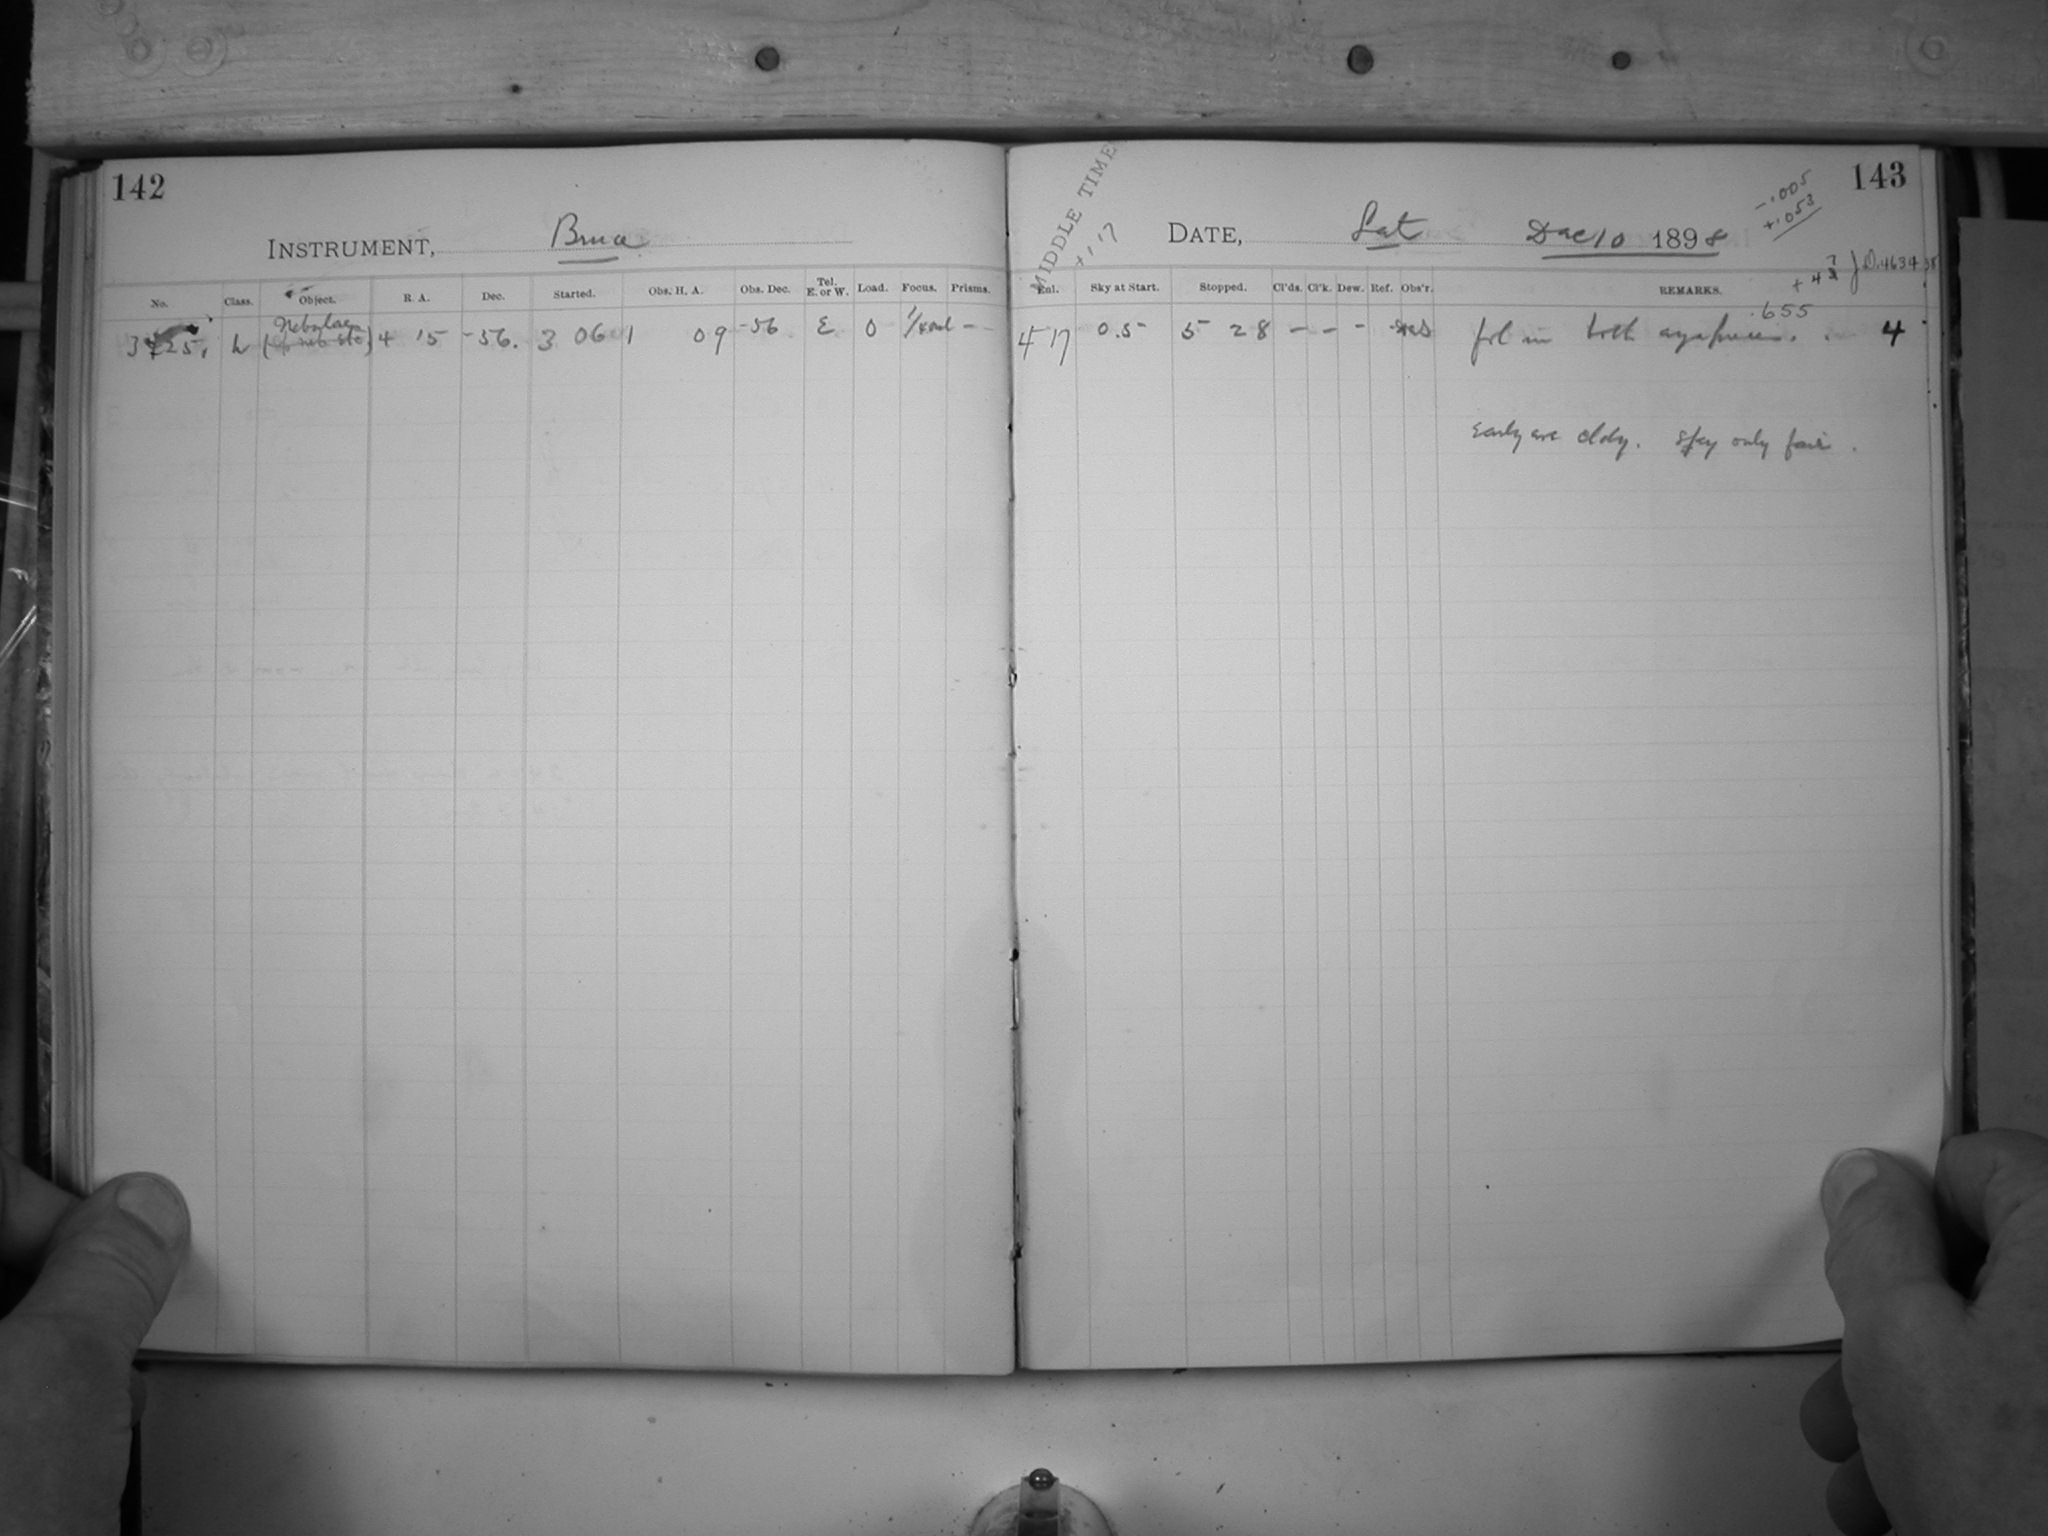 142
INSTRUMENT, Bruce
No. Class. Object. R. A. Dec. Started. Obs. H. A. Obs. Dec. Tel. E. or W. Load. Focus. Prisms.
Nebulae
3 25. L 4 15 -56. 3 06 1 09 -56 E 0 –
143
MIDDLE TIME
+1.17
DATE, Sat Dec 10 1898
-.005
+.053
+4 J.D. 4634
Enl. Sky at Start. Stopped. Cl'ds. Cl'k. Dew. Ref. Obs'r. REMARKS.
.655
4 17 0.5 5 28 – – – fol in both 4
Early eve cldy. Sky only fair.